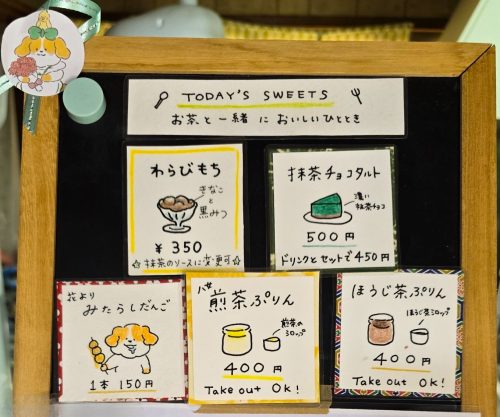 TODAY'S SWEETS
お茶と一緒においしいひととき
わらびもち
きなこ
と
黒みつ
¥350
☆抹茶のソースに変更可☆
抹茶チョコタルト
濃い
抹茶チョコ
500円
ドリンクとセットで450円
花より
みたらしだんご
1本 150円
八女
煎茶ぷりん
煎茶の
シロップ
400円
Take out OK!
ほうじ茶ぷりん
ほうじ茶シロップ
400円
Take out OK!